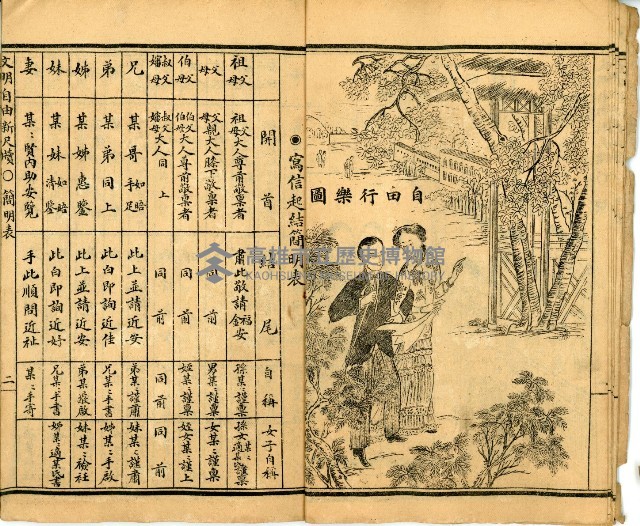 自由行樂圖
◉寫信起結簡明表
開首
結尾
自稱
女子自稱
祖父母
祖父母大人尊前敬稟者
肅此敬請福安 金安
孫某ミ謹稟
父母
父母親大人膝下敬稟者
同前
男某ミ謹稟
女某ミ謹稟
伯父母
伯父母大人尊前敬稟者
同前
姪某ミ謹稟
姪女某ミ謹上
叔父嬸母
叔父嬸母大人同上
同前
同前
同前
兄
某哥如晤手足
此上並請近安
弟某謹肅
妹某ミ謹肅
弟
某弟同上
此白即詢近佳
兄某ミ手書
姊某ミ手啟
姊
某姊惠鑒
此上並請近安
弟某敬啟
妹某ミ襝衽
妹
某妹如晤清鑒
此白即詢近好
兄某ミ手書
妻
某ミ賢內助妝覽
手此順問近祉
某ミ手寄
文明自由新尺牘〇簡明表
二
高雄市立歷史博物館
KAOHSIUNG MUSEUM OF HISTORY